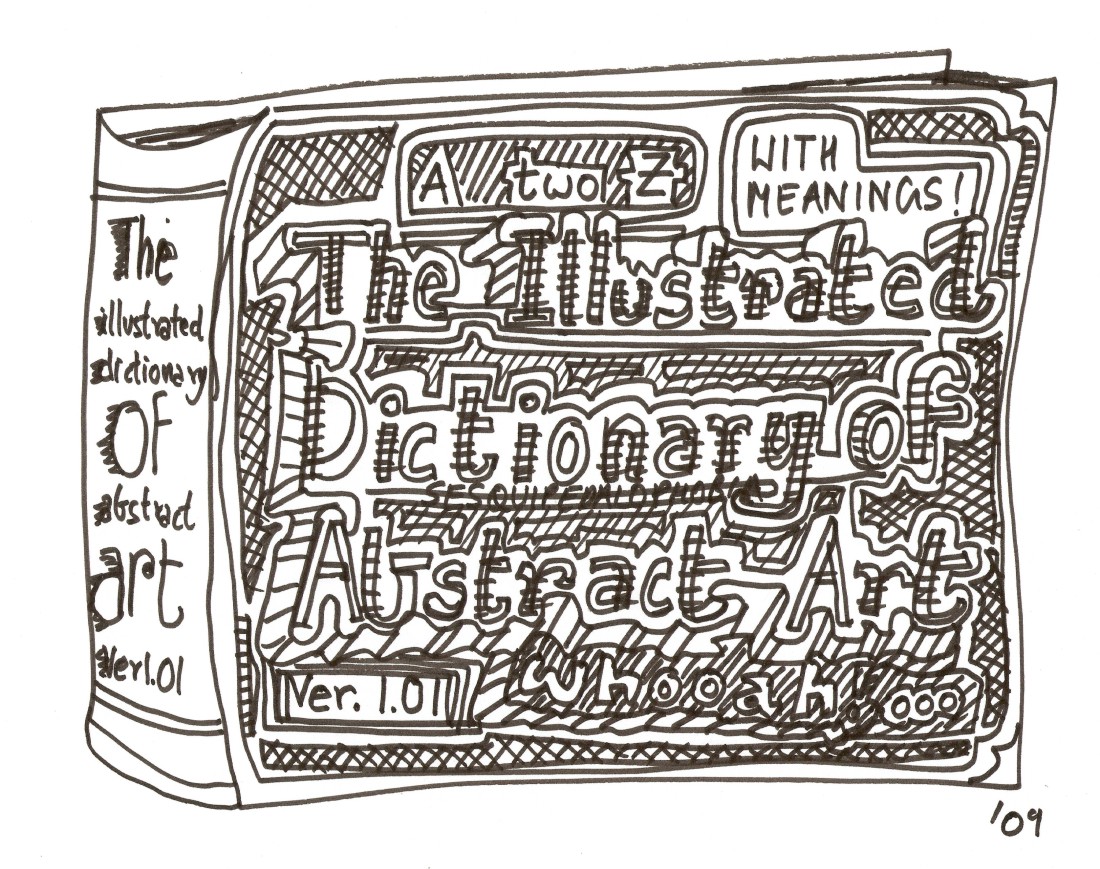 A two Z
WITH
MEANINGS!
The Illustrated
Dictionary of
Abstract Art
Ver. 1.01
whoo ah! ooo
The
illustrated
dictionary
Of
abstract
art
Ver1.01
'09